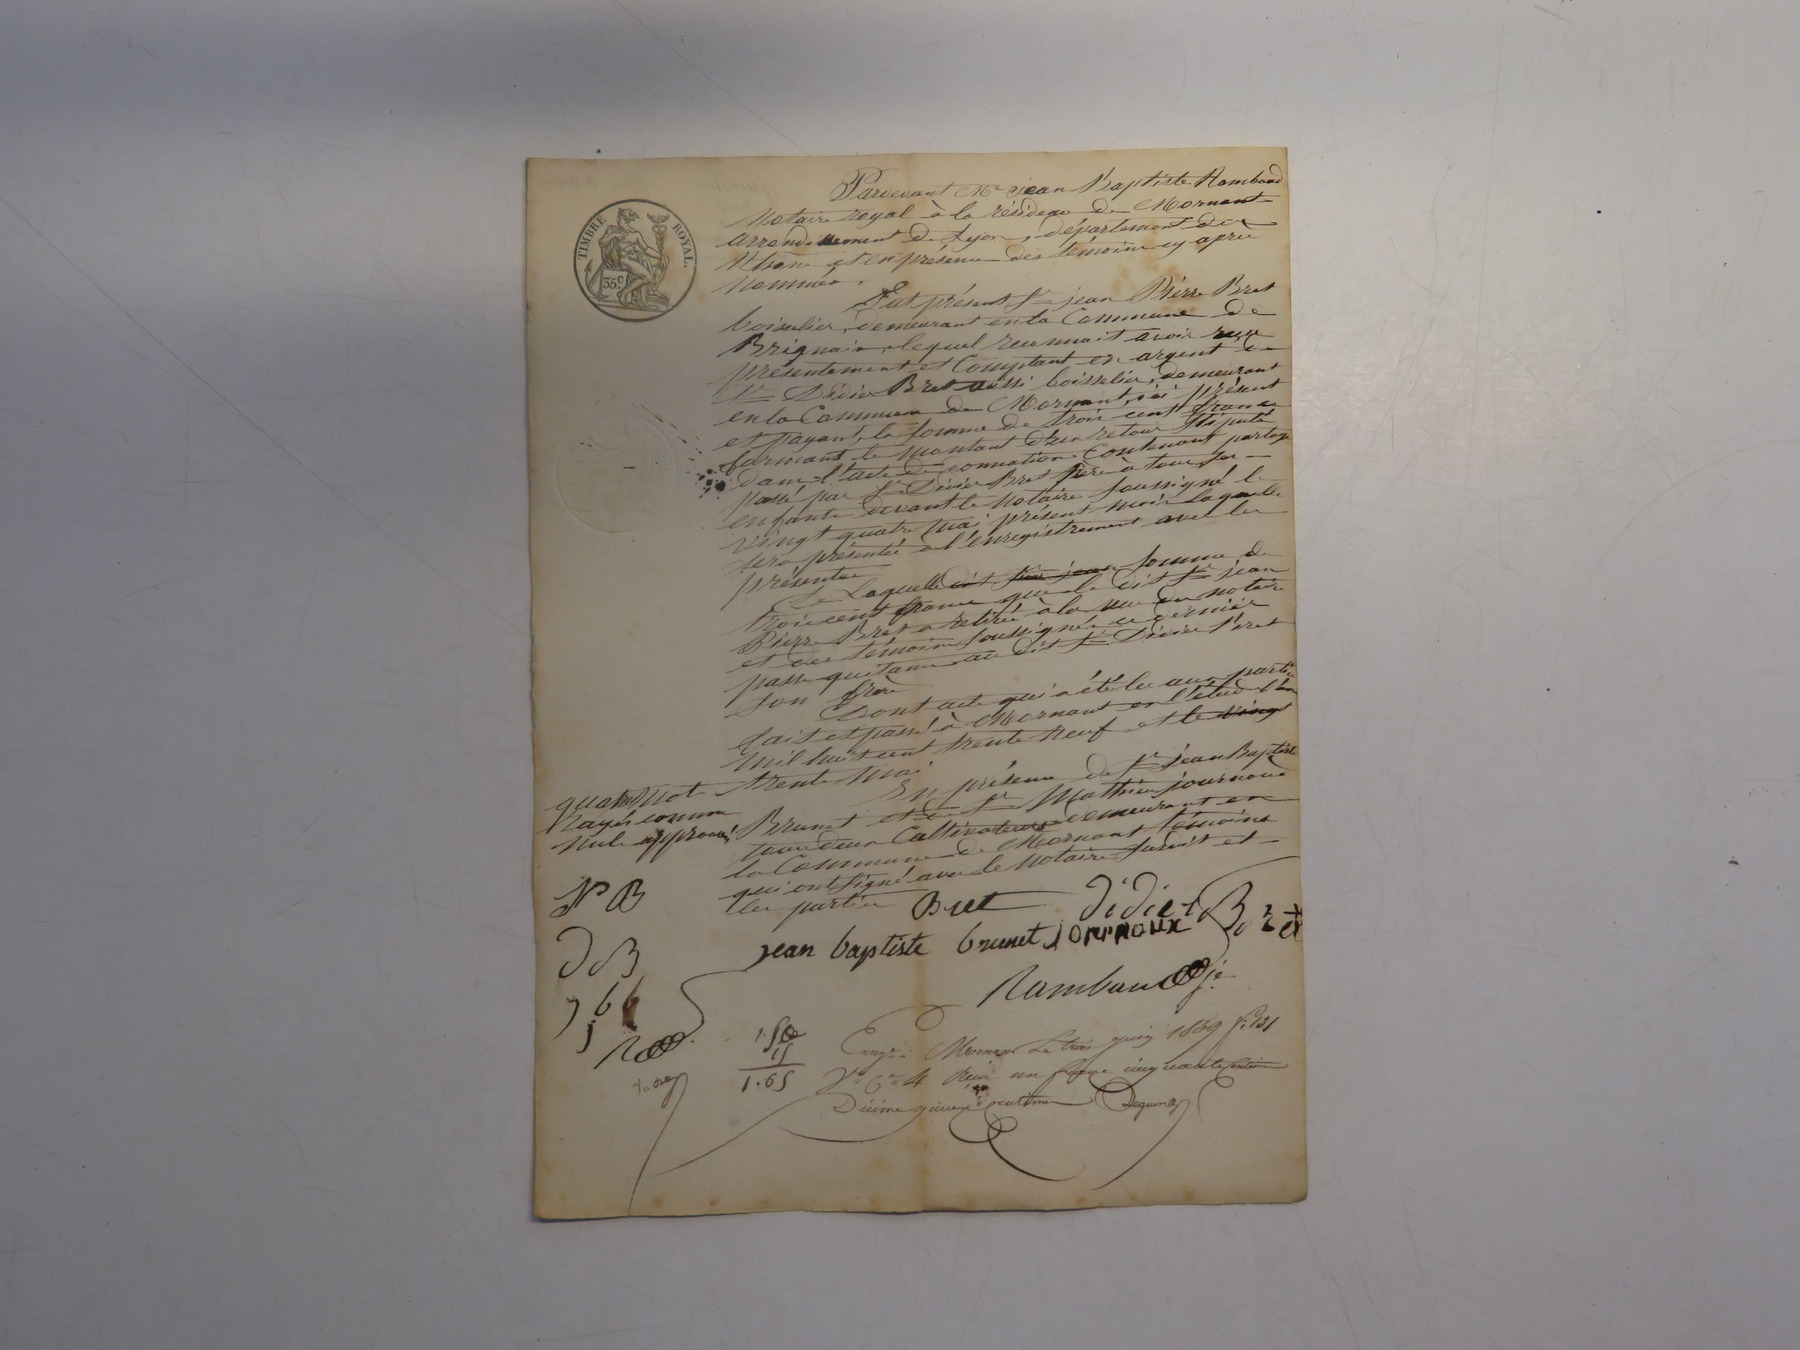 TIMBRE ROYAL.
35c
Pardevant Me jean Baptiste Rambaud
Notaire royal à la résidence de Mornant
arrondissement de Lyon, département du
Rhône et en présence des témoins cy après
nommés.
Fut présent Sr jean Pierre Bret
boisselier, demeurant en la Commune de
Brignais, lequel reconnait avoir reçu
présentement et Comptant en argent de
Sr Didier Bret aussi boisselier, demeurant
en la Commune de Mornant, ici présent
et payant, la somme de trois cent francs
formant le montant d'un retour stipulé
dans l'acte de donnation Contenant partage
passé par Sr Didier Bret père à tous ses
enfants devant le Notaire soussigné le
vingt quatre mai présent mois laquelle
sera présentée à l'enregistrement avec les
présentes
Laquelle dit Sr jean somme de
trois cent francs que le dit Sr jean
Pierre Bret a retiré à la vue du notaire
et des témoins soussignés ce dernier
passe quittance au dit Sr Didier Bret
son frère
Dont acte qui a été lu aux parties
fait et passé à Mornant en l'étude l'an
Mil huit cent trente neuf et le vingt
trente Mai
En présence de Sr jean Baptiste
Brunet et de Sr Mathieu journoux
tous deux Cultivateurs demeurant en
la Commune de Mornant témoins
qui ont signé avec le Notaire susdit et
les parties
quatre mots
Rayés comme
nuls approuvés
Bret didier Bret
jean baptiste brunet journoux
Rambaud
JPB
dB
jbb
J
1.50
15
1.65
Enregé à Mornant Le trois juin 1839 fo 121
Vo Ce 4 Reçu un franc cinquante centimes
Décime quinze centimes